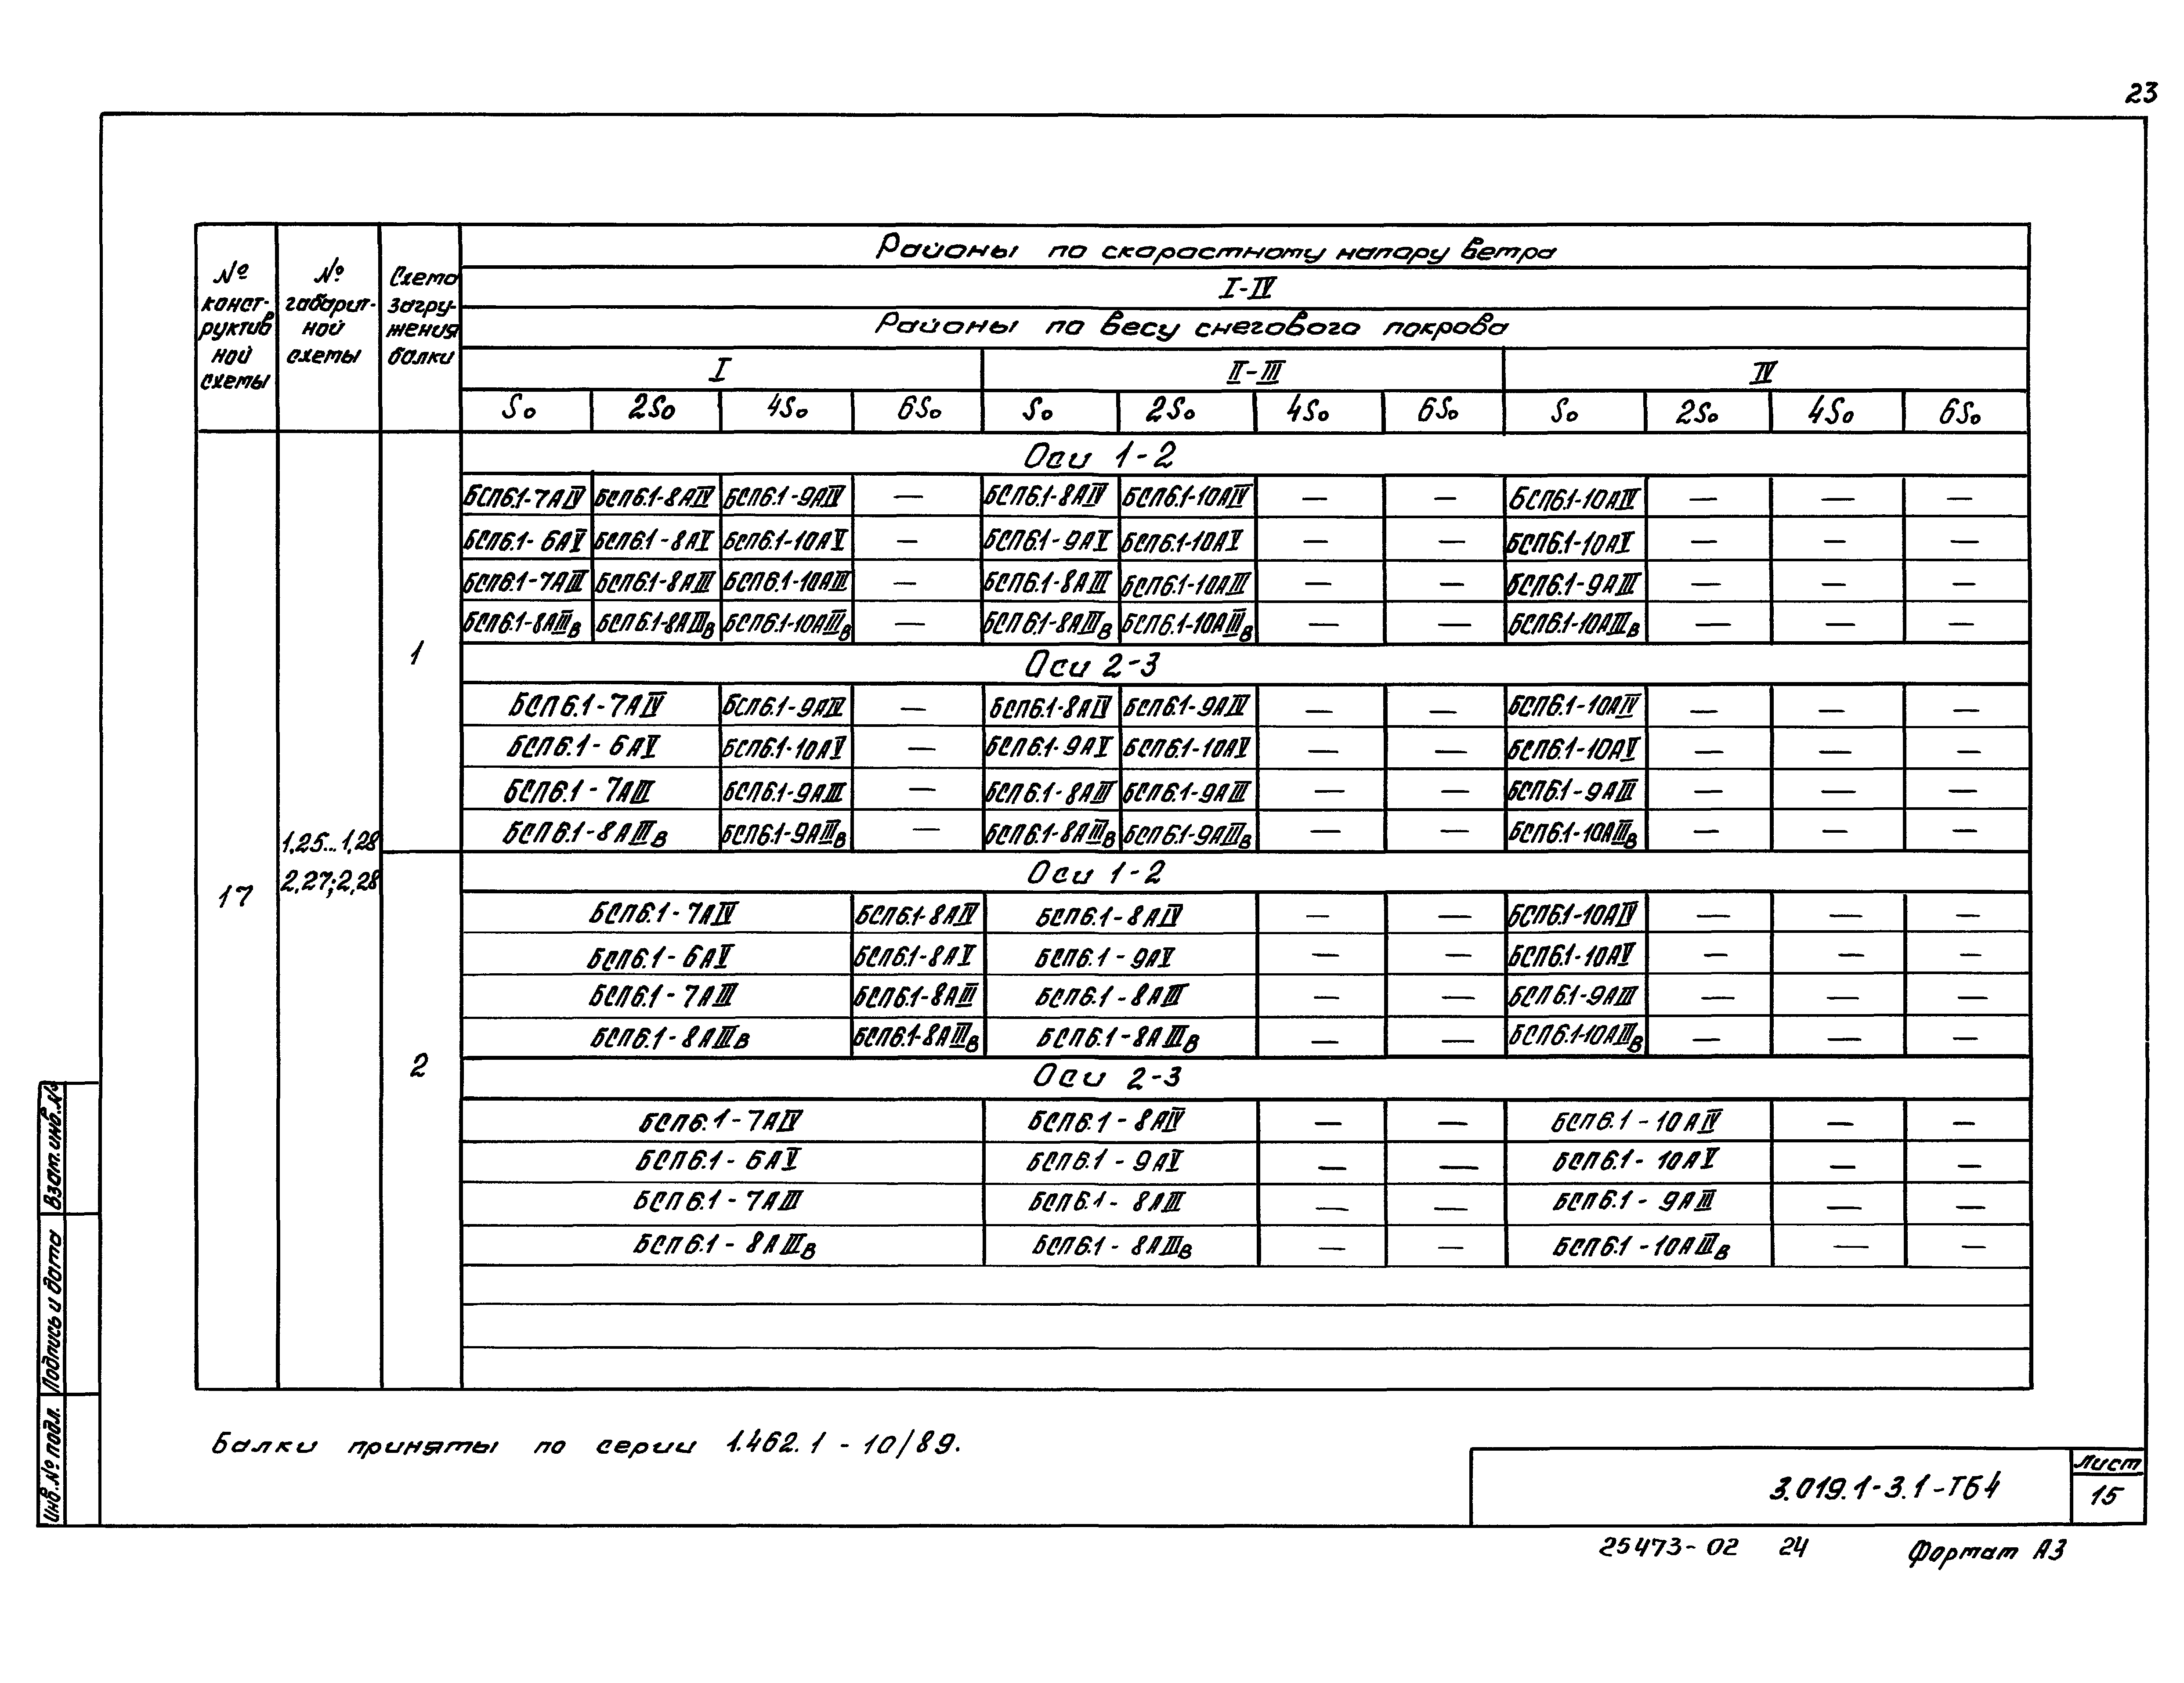 23
№ конструктивной схемы
№ габаритной схемы
Схема загружения балки
Районы по скоростному напору ветра
I-IV
Районы по весу снегового покрова
I II-III IV
S₀ 2S₀ 4S₀ 6S₀ S₀ 2S₀ 4S₀ 6S₀ S₀ 2S₀ 4S₀ 6S₀
Оси 1-2
БСП6.1-7АIV БСП6.1-8АIV БСП6.1-9АIV — БСП6.1-8АIV БСП6.1-10АIV — — БСП6.1-10АIV — — —
БСП6.1-6АV БСП6.1-8АV БСП6.1-10АV — БСП6.1-9АV БСП6.1-10АV — — БСП6.1-10АV — — —
БСП6.1-7АIII БСП6.1-8АIII БСП6.1-10АIII — БСП6.1-8АIII БСП6.1-10АIII — — БСП6.1-9АIII — — —
БСП6.1-8АIIIв БСП6.1-8АIIIв БСП6.1-10АIIIв — БСП6.1-8АIIIв БСП6.1-10АIIIв — — БСП6.1-10АIIIв — — —
1
Оси 2-3
БСП6.1-7АIV БСП6.1-9АIV — БСП6.1-8АIV БСП6.1-9АIV — — БСП6.1-10АIV — — —
БСП6.1-6АV БСП6.1-10АV — БСП6.1-9АV БСП6.1-10АV — — БСП6.1-10АV — — —
БСП6.1-7АIII БСП6.1-9АIII — БСП6.1-8АIII БСП6.1-9АIII — — БСП6.1-9АIII — — —
БСП6.1-8АIIIв БСП6.1-9АIIIв — БСП6.1-8АIIIв БСП6.1-9АIIIв — — БСП6.1-10АIIIв — — —
17
1,25...1,28
2,27; 2,28
Оси 1-2
БСП6.1-7АIV БСП6.1-8АIV БСП6.1-8АIV — — БСП6.1-10АIV — — —
БСП6.1-6АV БСП6.1-8АV БСП6.1-9АV — — БСП6.1-10АV — — —
БСП6.1-7АIII БСП6.1-8АIII БСП6.1-8АIII — — БСП6.1-9АIII — — —
БСП6.1-8АIIIв БСП6.1-8АIIIв БСП6.1-8АIIIв — — БСП6.1-10АIIIв — — —
2
Оси 2-3
БСП6.1-7АIV БСП6.1-8АIV — — БСП6.1-10АIV — —
БСП6.1-6АV БСП6.1-9АV — — БСП6.1-10АV — —
БСП6.1-7АIII БСП6.1-8АIII — — БСП6.1-9АIII — —
БСП6.1-8АIIIв БСП6.1-8АIIIв — — БСП6.1-10АIIIв — —
Балки приняты по серии 1.462.1-10/89.
Взам.инв.№
Подпись и дата
Инв.№ подл.
3.019.1-3.1-ТБ4
Лист
15
25473-02 24 Формат А3